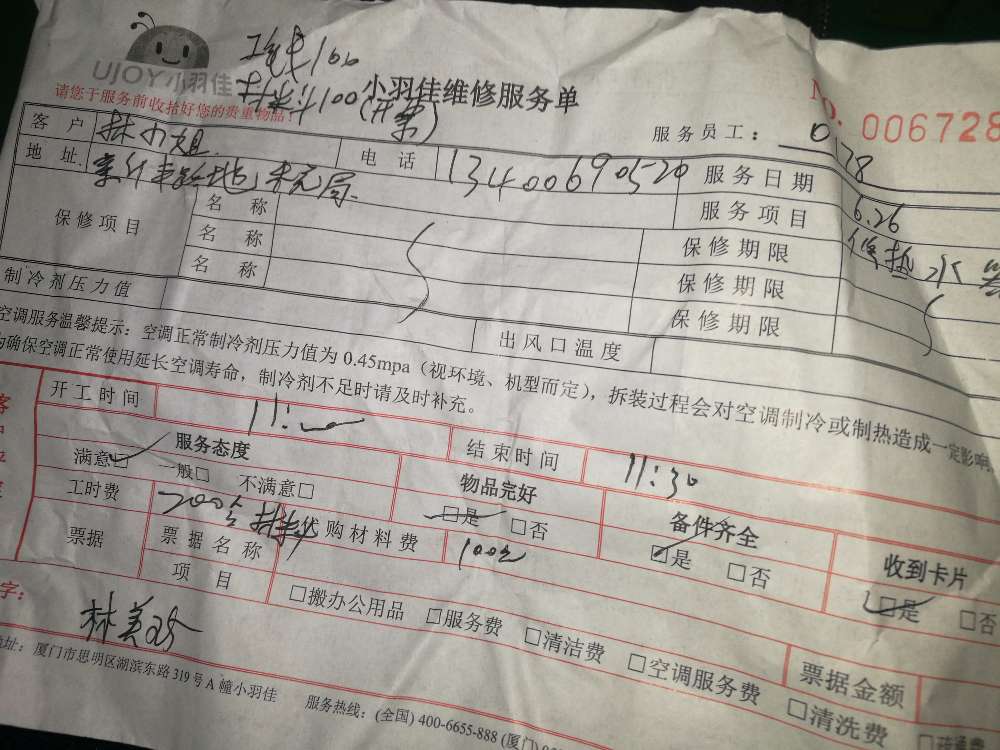 UJOY小羽佳
工钱100
材料100(开票)
小羽佳维修服务单
No. 006728
请您于服务前收拾好您的贵重物品!
服务员工: 0178
客户 林小姐 电话 13400690520 服务日期 6.26
地址 服务项目 修热水器
保修项目 名称 保修期限
名称 保修期限
名称 保修期限
制冷剂压力值 出风口温度
空调服务温馨提示: 空调正常制冷剂压力值为 0.45mpa (视环境、机型而定), 拆装过程会对空调制冷或制热造成一定影响
为确保空调正常使用延长空调寿命, 制冷剂不足时请及时补充。
开工时间 11: 结束时间 11:30
服务态度 物品完好 备件齐全 收到卡片
满意□ 一般□ 不满意□ □是 □否 □是 □否 □是 □否
工时费 200含材料 代购材料费 100元
票据 票据名称
项目 □搬办公用品 □服务费 □清洁费 □空调服务费 □清洗费
票据金额
字:
林美珍
地址: 厦门市思明区湖滨东路 319 号 A 幢小羽佳 服务热线: (全国) 400-6655-888 (厦门)